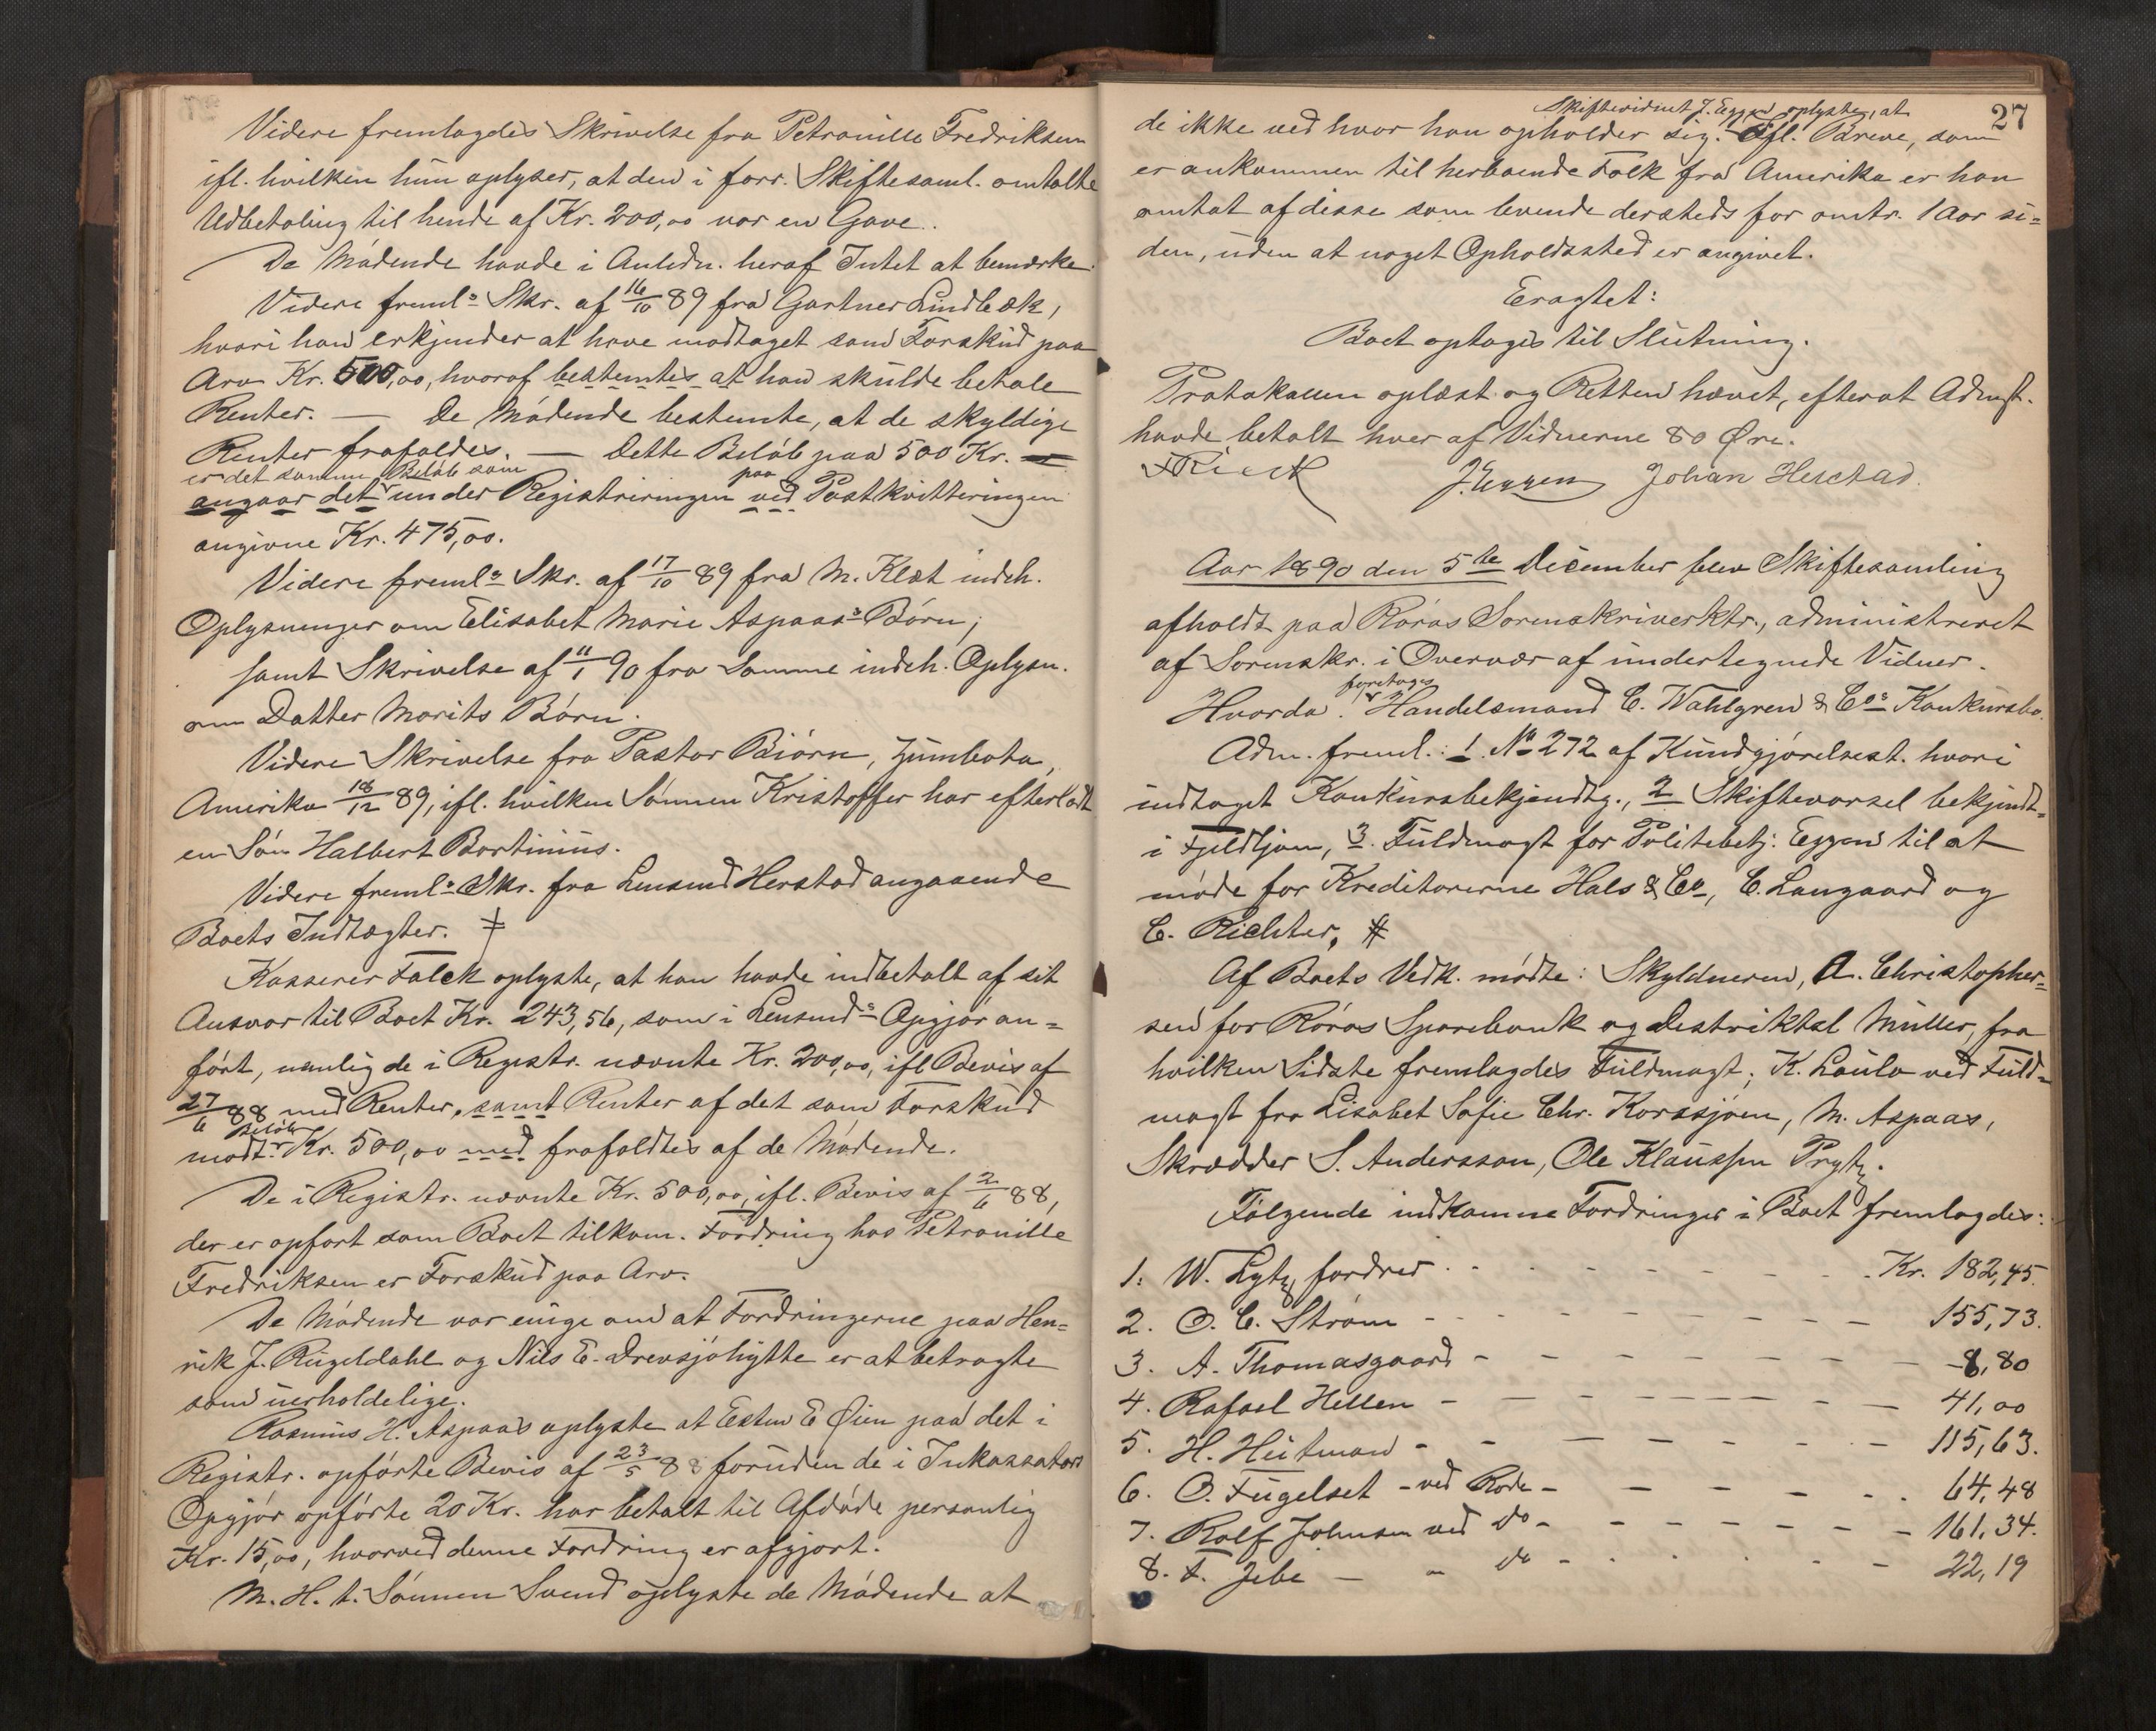 Videre fremlagdes Skrivelse fra Petronille Fredriksen
ifl. hvilken hun oplyser, at den i forr. Skiftesaml. omtalte
Udbetaling til hende af Kr. 200,00 var en Gave.
De Mödende havde i Anledn. heraf Intet at bemærke.
Videre freml.s Skr. af 16/10 89 fra Gartner Lindbæk,
hvori han erkjender at have modtaget som Forskud paa
Arv Kr. 500,00, hvoraf bestemtes at han skulde betale
Renter. — De Mödende bestemte, at de skyldige
Renter frafaldes. — Dette Belöb paa 500 Kr.
er det samme Belöb som paa
angaar det under Registreringen ved Postkvitteringen
angivne Kr. 475,00.
Videre freml.s Skr. af 17/10 89 fra M. Klæt indeh.
Oplysninger om Elisabet Marie Aspaas's Börn;
samt Skrivelse af 11/1 90 fra Samme indeh. Oplysn.
om Datter Marits Börn.
Videre Skrivelse fra Pastor Biörn, Zumbota,
Amerika 18/12 89, ifl. hvilken Sönnen Kristoffer har efterladt
en Sön Halbert Bortinius.
Videre freml.s Skr. fra Lensmd Herstad angaaende
Boets Indtægter. ‡
Kasserer Falck oplyste, at han havde indbetalt af sit
Ansvar til Boet Kr. 243,56, som i Lensmd.s Opgjör an=
fört, nemlig de i Registr. nævnte Kr. 200,00, ifl Bevis af
27/6 88 med Renter, samt Renter af det som Forskud
Belöb
modt. Kr. 500,00 med frafaldtes af de Mödende.
De i Registr. nævnte Kr. 500,00, ifl. Bevis af 2/6 88,
der er opfört som Boet tilkom. Fordring hos Petronille
Fredriksen er Forskud paa Arv.
De Mödende var enige om at Fordringerne paa Hen=
rik J. Rugeldahl og Nils E. Drevsjöhytte er at betragte
som uerholdelige.
Rasmus H. Aspaas oplyste at Esten E Øien paa det i
Registr. opförte Bevis af 23/5 88 foruden de i Inkassators
Opgjör opförte 20 Kr. har betalt til Afdöde personlig
Kr. 15,00, hvorved denne Fordring er afgjort.
M. H. t. Sönnen Svend oplyste de Mödende at
27
Skiftevidnet J. Eggen oplyste, at
de ikke ved hvor han opholder sig. Ifl. Breve, som
er ankommen til herboende Folk fra Amerika er han
omtat af disse som levende dersteds for omtr. 1 Aar si=
den, uden at noget Opholdssted er angivet.
Eragtet:
Boet optages til Slutning.
Protokollen oplæst og Retten hævet, efterat Admst.
havde betalt hver af Vidnerne 80 Øre.
J. Eggen Johan Herstad.
Aar 1890 den 5te December blev Skiftesamling
afholdt paa Röros Sorenskriverktr., administreret
af Sorenskr. i Overvær af undertegnede Vidner.
foretoges
Hvorda: Handelsmand C. Wahlgren & Co.s Konkursbo.
Adm. freml.: 1. No 272 af Kundgjörelsest. hvori
indtaget Konkursbekjendtg., 2 Skiftevarsel bekjendt=
i Fjeldljom, 3. Fuldmagt for Politibetj. Eggen til at
møde for Kreditorerne Hals & Co, C. Langaard og
C. Richter, #
Af Boets Vedk. mødte: Skyldneren, A. Christopher=
sen for Röros Sparebank og Destriktsl Müller, fra
hvilken Sidste fremlagdes Fuldmagt; K. Loulo ved Fuld=
magt fra Lisabet Sofie Chr. Korssjöen, M. Aspaas,
Skrædder S. Andersson, Ole Klaussen Prytz.
Fölgende indkomne Fordringer i Boet fremlagdes:
1: W. Lytz, fordrer - - - Kr. 182,45.
2. O. C. Ström - - - 155,73.
3. A. Thomasgaard - - - 8,80
4. Rafael Hellen - - - 41,00
5. H. Huitman - - - 115,63.
6. O. Fugelset - ved Rode - - - 64,48
7. Rolf Johnsen ved Do - - - 161,34.
8. F. Jebe - - do - - - 22,19